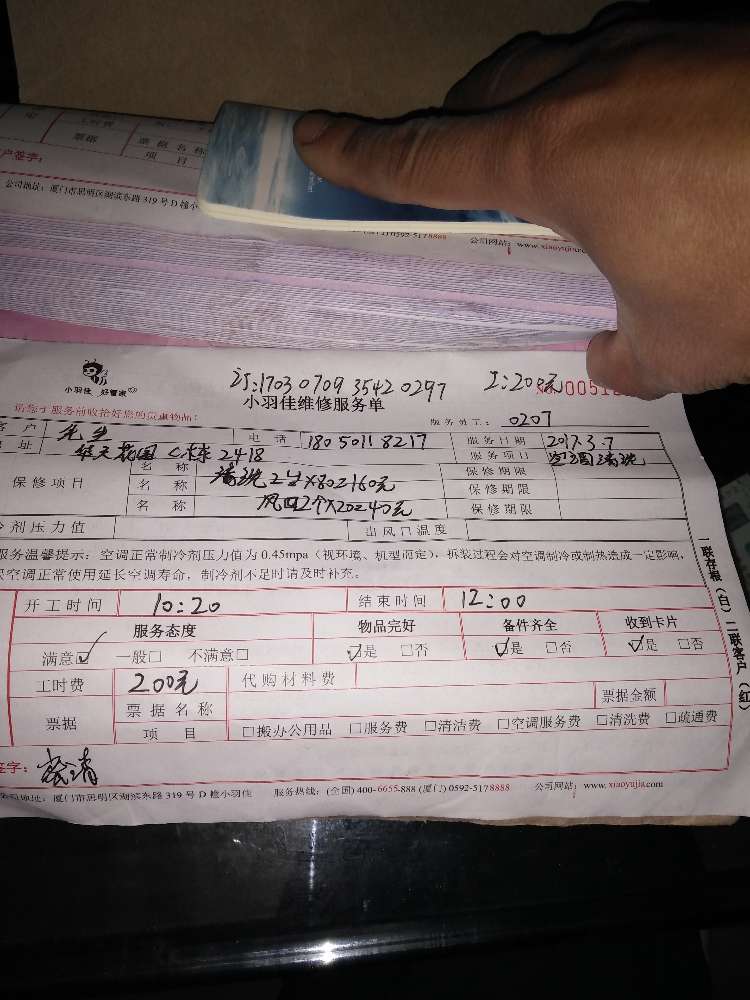 工时费
票据
票据名称
项 目
户签字:
公司地址: 厦门市思明区湖滨东路 319 号 D 幢小
0592-5178888
公司网站: www.xiaoyujia.com
小羽佳 好管家
订:1703 0709 3542 0297
工:200元
小羽佳维修服务单
请您于服务前收拾好您的贵重物品:
服务员工: 0207
客 户 先生 电 话 180 5011 8217 服务日期 2017.3.7
地址 华天花园 C栋 2418 服务项目 空调清洗
保修项目
名 称 保修期限
名 称 清洗2台X80=160元 保修期限
名 称 风口2个X20=40元 保修期限
冷剂压力值 出风口温度
服务温馨提示: 空调正常制冷剂压力值为 0.45mpa (视环境、机型而定), 拆装过程会对空调制冷或制热造成一定影响,
空调正常使用延长空调寿命, 制冷剂不足时请及时补充。
开工时间 10:20 结束时间 12:00
服务态度 物品完好 备件齐全 收到卡片
满意☑ 一般□ 不满意□ ☑是 □否 ☑是 □否 ☑是 □否
工时费 200元 代购材料费
票据 票据名称 票据金额
项 目 □搬办公用品 □服务费 □清洁费 □空调服务费 □清洗费 □疏通费
签字:
公司地址: 厦门市思明区湖滨东路 319 号 D 幢小羽佳 服务热线: (全国) 400-6655-888 (厦门) 0592-5178888 公司网站: www.xiaoyujia.com
一联存根(白) 二联客户(红)